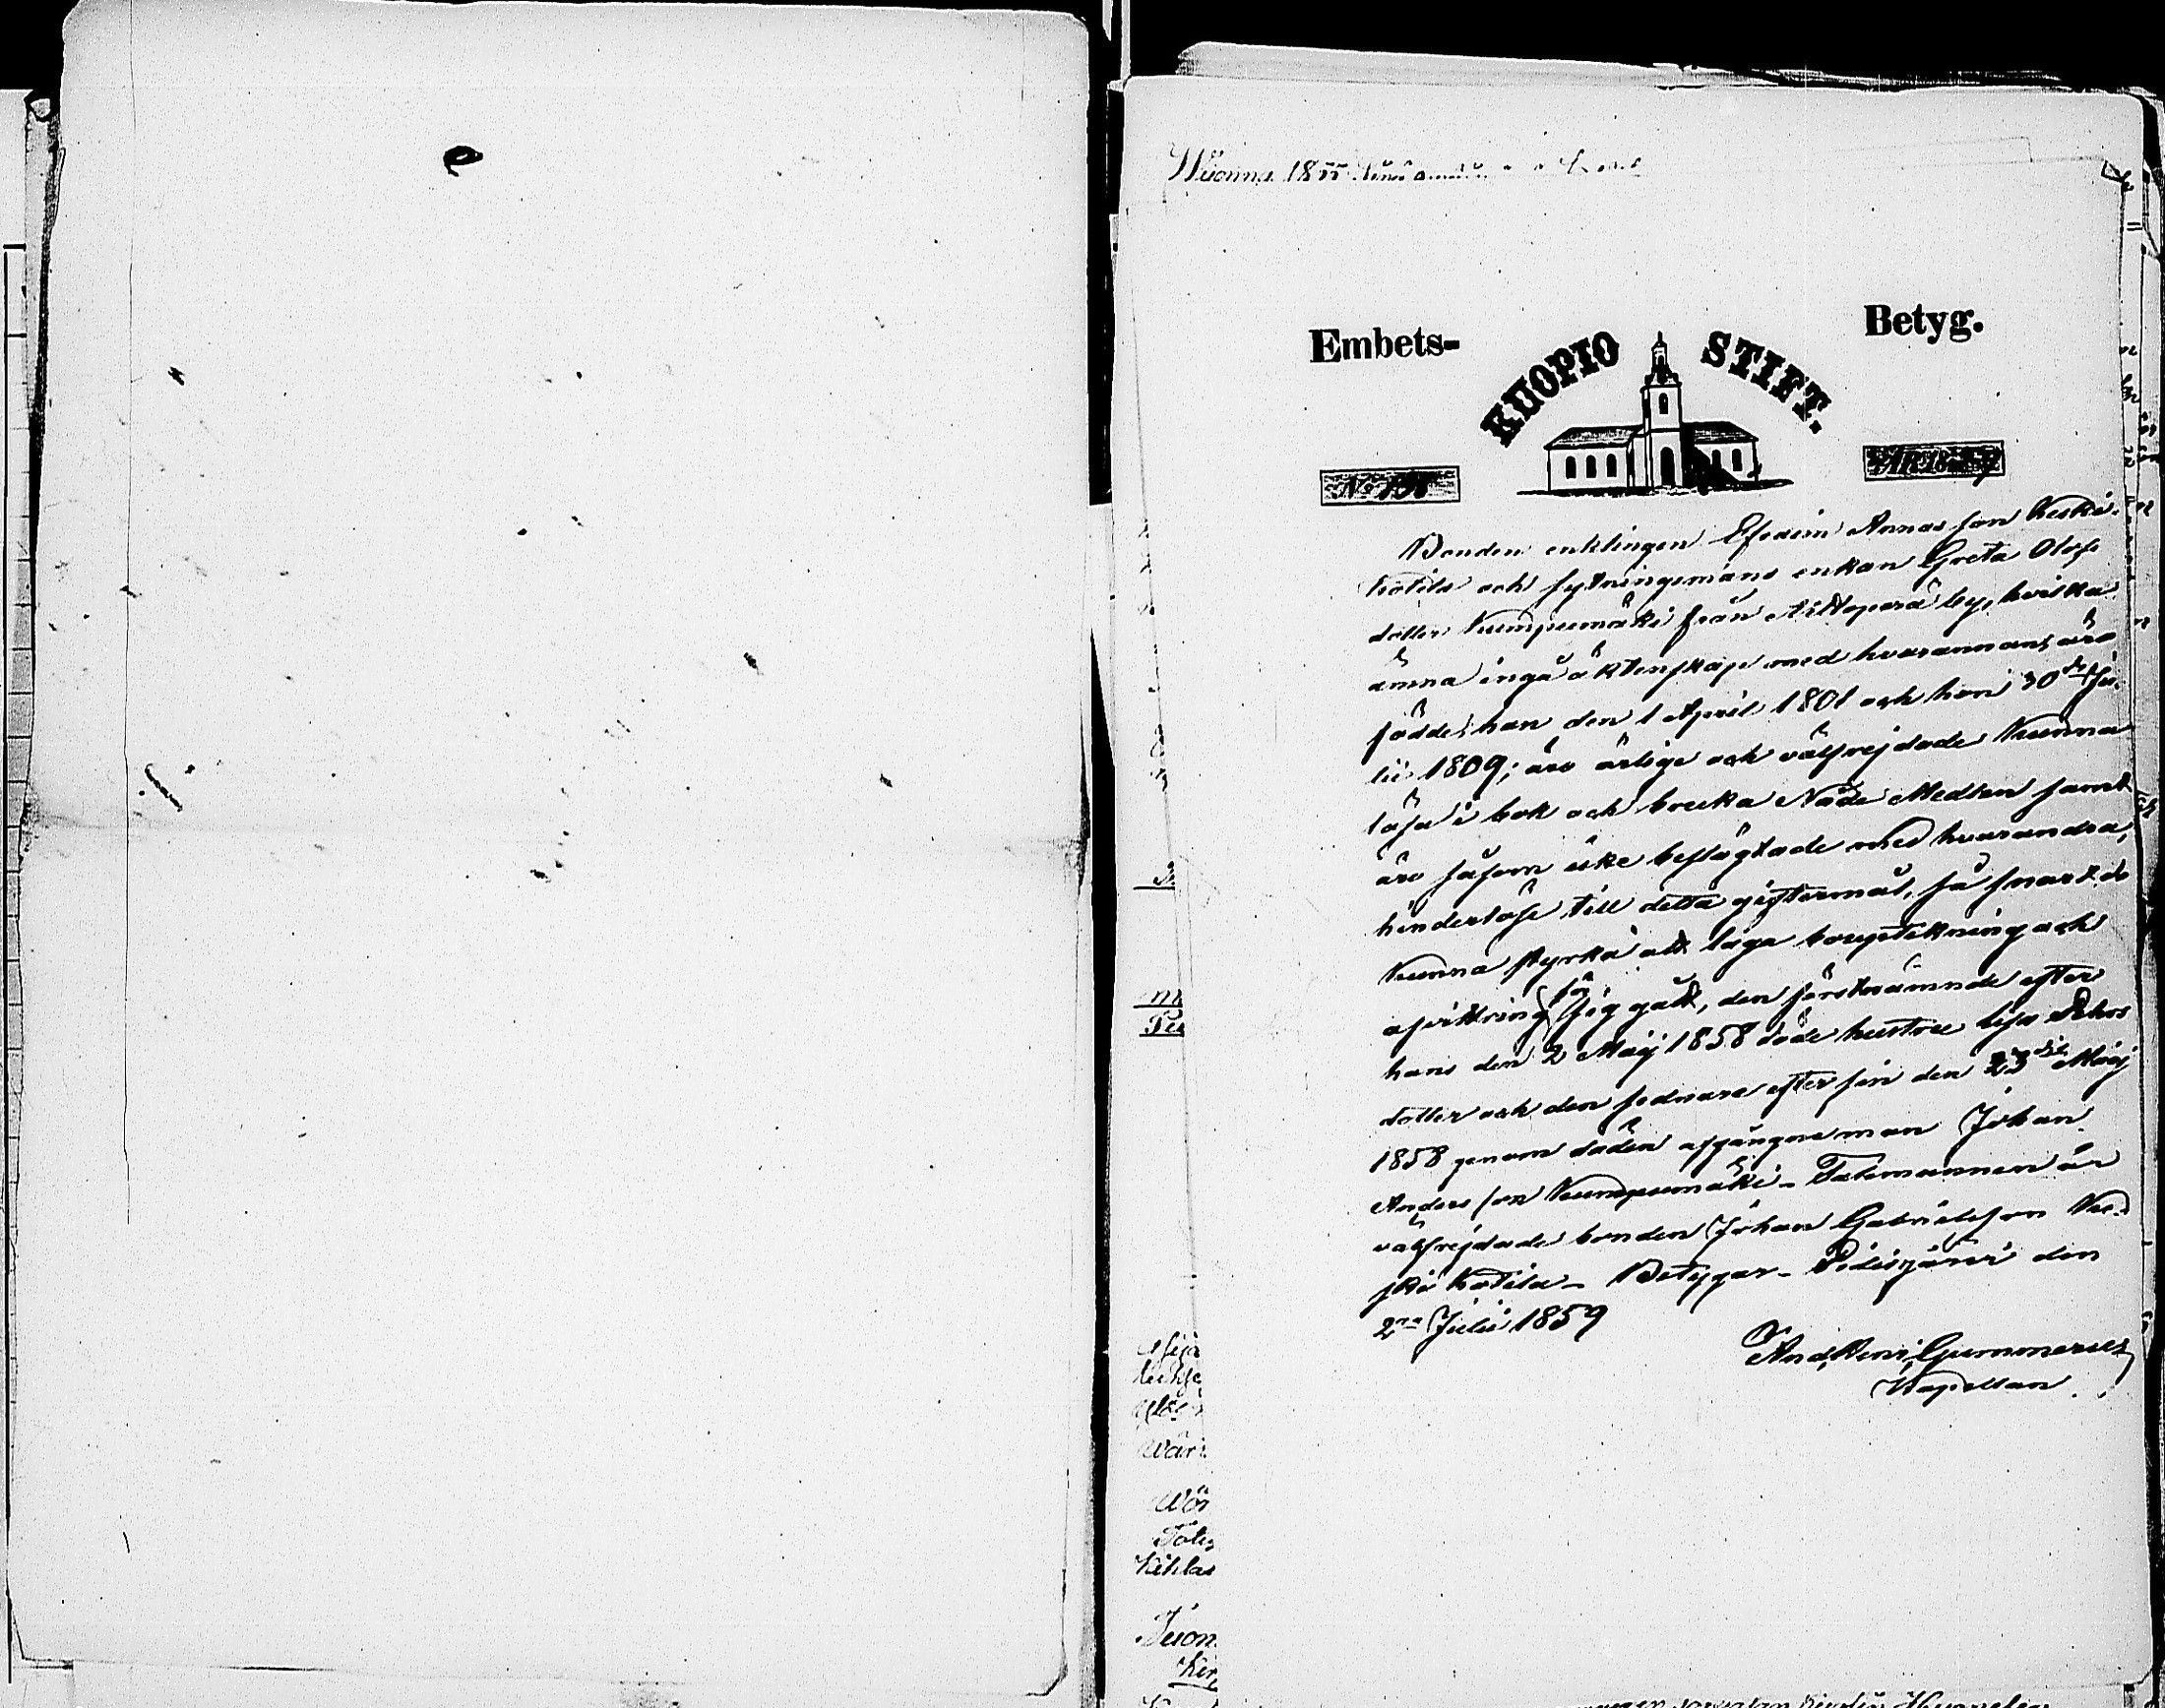 Wuonna 1855
Embets- Betyg.
KUOPIO STIFT.
No
Bonden enklingen Efraim Annas son Keski-
kotila och sytningsmans enkan Greta Olofs
dotter Kumpumäki från Aittoperä by, hvilka
ämna ingå äktenskap med hvarannan, äro
födde, han den 1 April 1801 och hon 30de Ju-
lii 1809; äro ärlige och välfrejdade kunna
läsa i bok och bruka Nåde Medlen samt
äro såsom icke beslägtade med hvarandra,
hinderlöse till detta giftermål, så snart de
kunna styrka att laga bouptekning och
afvittring för sig gått, den förstnämnde efter
hans den 2 Maij 1858 döde hustru Lisa Pehrs
dotter och den sednare efter sin den 23die Maij
1858 genom döden afgångne man Johan
Anders son Kumpumäki - Talemannen är
välfrejdade bonden Johan Gabrielsson Ke-
ski kotila - Betygar - Pidisjärvi den
2na Julii 1859
And. Reni. Gummerus
Kapellan.
Wär
Wör
Tote
Kihla
Juon
Kir